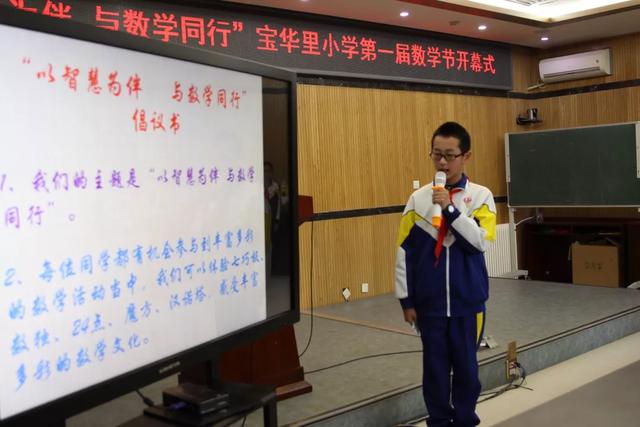 与数学同行” 宝华里小学第一届数学节开幕式
“以智慧为伴 与数学同行”
倡议书
1、我们的主题是“以智慧为伴 与数学
同行”。
2、每位同学都有机会参与到丰富多彩
的数学活动当中，我们可以体验七巧板、
数独、24点、魔方、汉诺塔，感受丰富
多彩的数学文化。